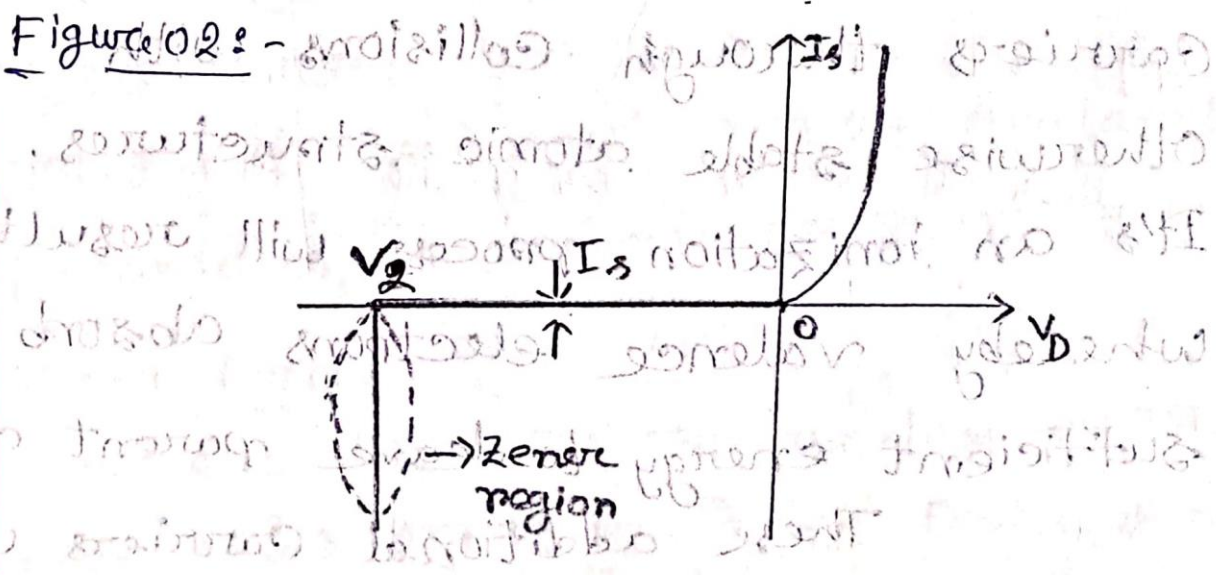 Figure 02:-
Is
Vz
Is
0
VD
→Zener
region